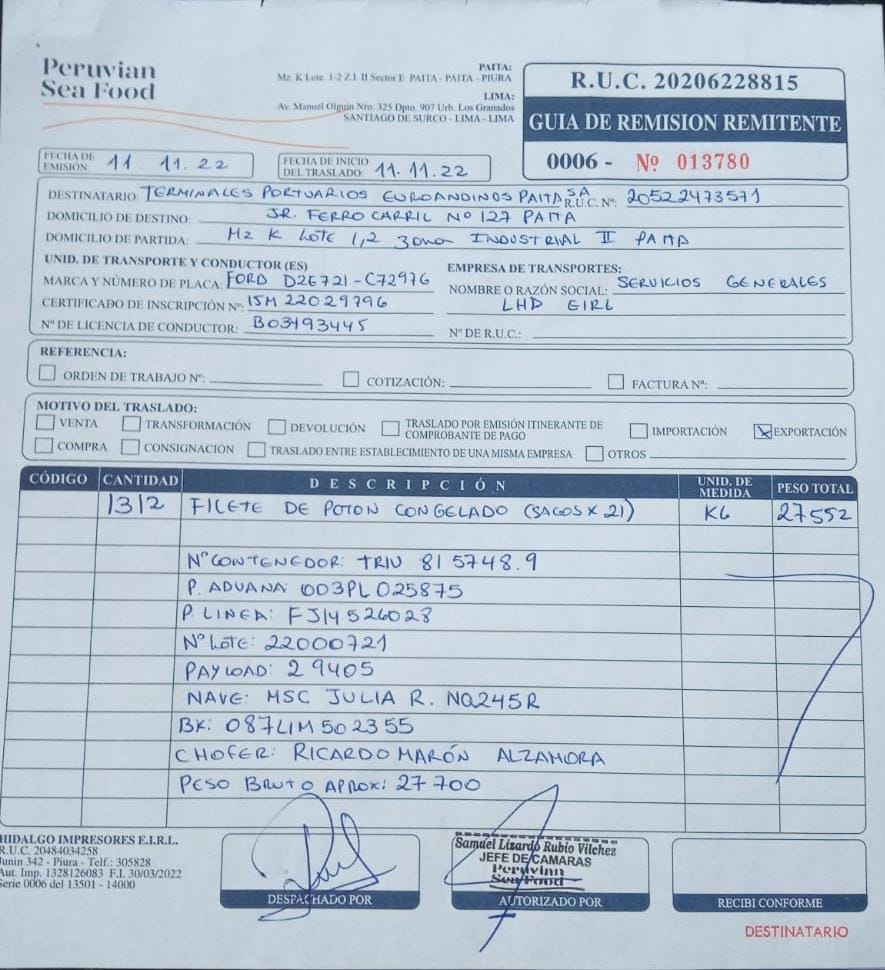 Peruvian
Sea Food
PAITA:
Mz. K Lote. 1-2 Z.I. II Sector E PAITA - PAITA - PIURA
LIMA:
Av. Manuel Olguin Nro. 325 Dpto. 907 Urb. Los Granados
SANTIAGO DE SURCO - LIMA - LIMA
R.U.C. 20206228815
GUIA DE REMISION REMITENTE
0006 - Nº 013780
FECHA DE EMISIÓN: 11. 11.22
FECHA DE INICIO DEL TRASLADO: 11.11.22
DESTINATARIO: TERMINALES PORTUARIOS EUROANDINOS PAITA SA R.U.C. Nº: 20522473571
DOMICILIO DE DESTINO: JR. FERRO CARRIL Nº 127 PAITA
DOMICILIO DE PARTIDA: Mz K Lote 1,2 Zona INDUSTRIAL II PAITA
UNID. DE TRANSPORTE Y CONDUCTOR (ES)
MARCA Y NÚMERO DE PLACA: FORD D2E721-C72976
CERTIFICADO DE INSCRIPCIÓN Nº: 15M22029796
Nº DE LICENCIA DE CONDUCTOR: B03493445
EMPRESA DE TRANSPORTES:
NOMBRE O RAZÓN SOCIAL: SERVICIOS GENERALES
LHD EIRL
Nº DE R.U.C.:
REFERENCIA:
ORDEN DE TRABAJO Nº: COTIZACIÓN: FACTURA Nº:
MOTIVO DEL TRASLADO:
VENTA TRANSFORMACIÓN DEVOLUCIÓN TRASLADO POR EMISIÓN ITINERANTE DE COMPROBANTE DE PAGO IMPORTACIÓN EXPORTACIÓN
COMPRA CONSIGNACIÓN TRASLADO ENTRE ESTABLECIMIENTO DE UNA MISMA EMPRESA OTROS
CÓDIGO CANTIDAD DESCRIPCIÓN UNID. DE MEDIDA PESO TOTAL
1312 FILETE DE POTON CONGELADO (SACOS X 21) KG 27552
Nº CONTENEDOR: TRIU 815748.9
P. ADUANA: 003PL025875
P. LINEA: FJ14526028
Nº LOTE: 22000721
PAYLOAD: 29405
NAVE: MSC JULIA R. NQ245R
BK: 087LIM502355
CHOFER: RICARDO MARÓN ALZAMORA
PESO BRUTO APROX: 27700
HIDALGO IMPRESORES E.I.R.L.
R.U.C. 20484034258
Junin 342 - Piura - Telf.: 305828
Aut. Imp. 1328126083 F.I. 30/03/2022
Serie 0006 del 13501 - 14000
DESPACHADO POR
Samuel Lizardo Rubio Vilchez
JEFE DE CAMARAS
Peruvian
Sea Food
AUTORIZADO POR
RECIBI CONFORME
DESTINATARIO